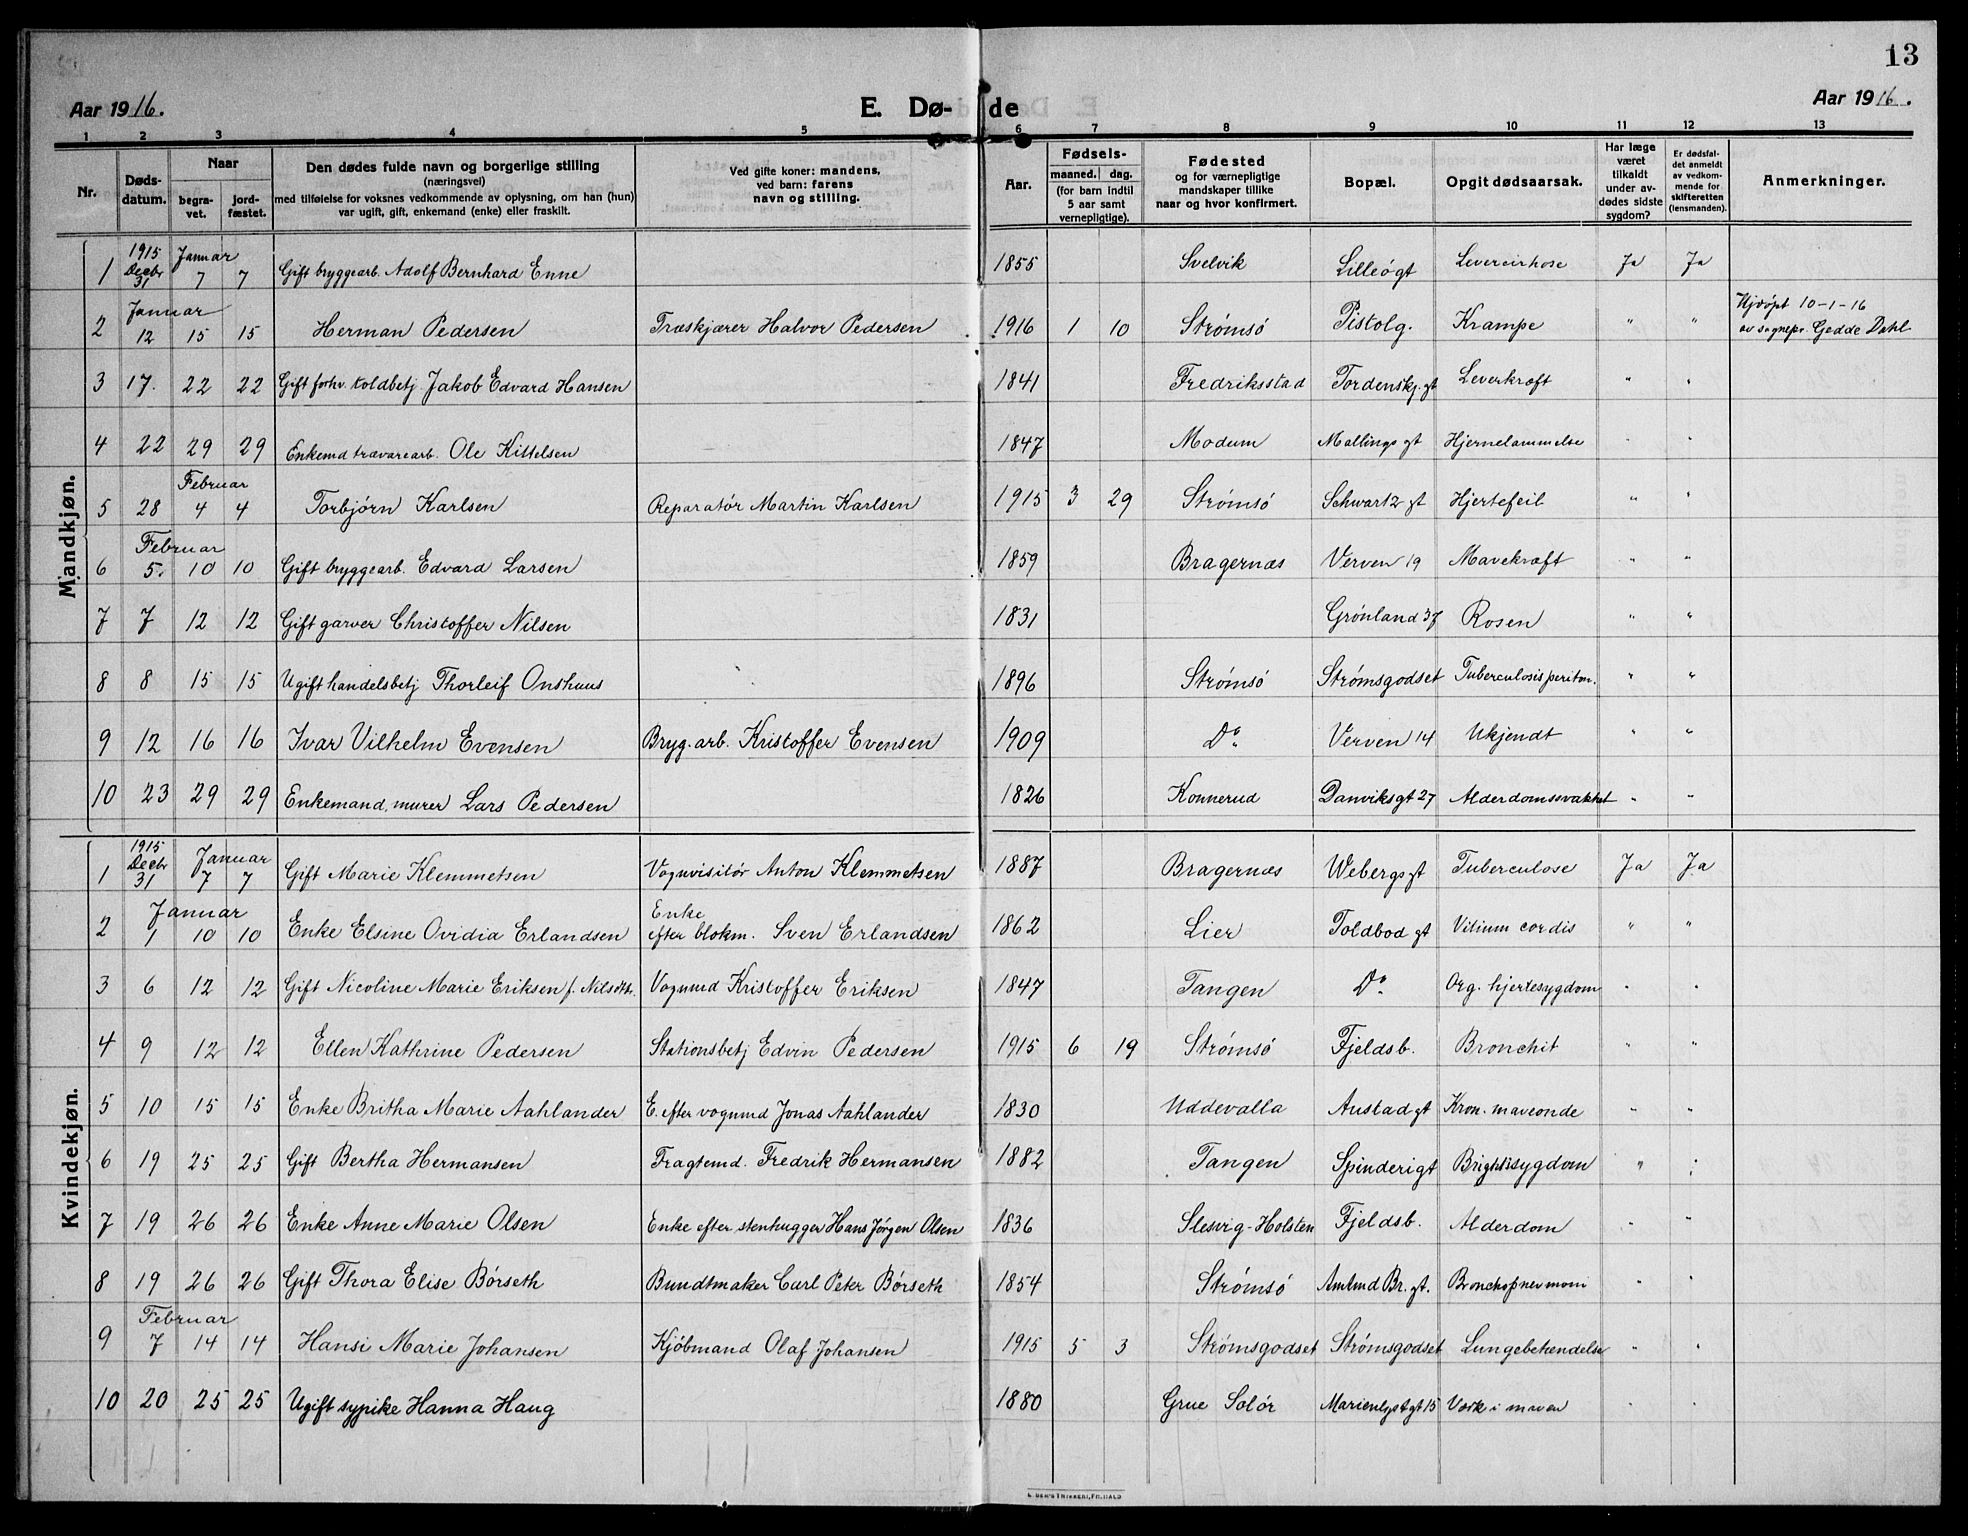 13
Aar 1916. E. Dø- de Aar 1916.
1 2 3 4 5 6 7 8 9 10 11 12 13
Nr. Døds-datum. Naar begravet. jordfæstet. Den dødes fulde navn og borgerlige stilling (næringsvei) med tilføielse for voksnes vedkommende av oplysning, om han (hun) var ugift, gift, enkemand (enke) eller fraskilt. Ved gifte koner: mandens, ved barn: farens navn og stilling. Aar. Fødsels- maaned. dag. (for barn indtil 5 aar samt vernepligtige). Fødested og for værnepligtige mandskaper tillike naar og hvor konfirmert. Bopæl. Opgit dødsaarsak. Har læge været tilkaldt under avdødes sidste sygdom? Er dødsfaldet anmeldt av vedkommende for skifteretten (lensmanden). Anmerkninger.
Mandkjøn.
1 1915 Decbr 31 Januar 7 7 Gift bryggearb. Adolf Bernhard Enne 1855 Svelvik Lilleøgt Levercirhose Ja Ja
2 Januar 12 15 15 Herman Pedersen Træskjærer Halvor Pedersen 1916 1 10 Strømsø Pistolg. Krampe " " Hjdøpt 10-1-16 av sognepr. Gedde Dahl
3 17. 22 22 Gift forhv. toldbetj. Jakob Edvard Hansen 1841 Fredriksstad Tordenskj.gt Leverkræft " "
4 22 29 29 Enkemd trævarearb. Ole Kittelsen 1847 Modum Mallings gt Hjernelammelse " "
5 28 Februar 4 4 Torbjørn Karlsen Reparatør Martin Karlsen 1915 3 29 Strømsø Schwartz gt Hjertefeil " "
6 Februar 5. 10 10 Gift bryggearb. Edvard Larsen 1859 Bragernæs Verven 19 Mavekræft " "
7 7 12 12 Gift garver Christoffer Nilsen 1831 Grønland 37 Rosen " "
8 8 15 15 Ugift handelsbetj Thorleif Onshuus 1896 Strømsø Strømsgodset Tuberculosis periton. " "
9 12 16 16 Ivar Vilhelm Evensen Bryg.arb. Kristoffer Evensen 1909 Do Verven 14 Ukjendt " "
10 23 29 29 Enkemand, murer Lars Pedersen 1826 Konnerud Danviksgt 27 Alderdomssvakhet " "
Kvindekjøn.
1 1915 Decbr 31 Januar 7 7 Gift Marie Klemmetsen Vognvisitør Anton Klemmetsen 1887 Bragernæs Webergs gt Tuberculose Ja Ja
2 Januar 1 10 10 Enke Elsine Ovidia Erlandsen Enke efter blokm. Sven Erlandsen 1862 Lier Toldbod gt Vitium cordis " "
3 6 12 12 Gift Nicoline Marie Eriksen f. Nilsdtr. Vognmd Kristoffer Eriksen 1847 Tangen Do Org. hjertesygdom " "
4 9 12 12 Ellen Kathrine Pedersen Stationsbetj Edvin Pedersen 1915 6 19 Strømsø Fjeldsb. Bronchit " "
5 10 15 15 Enke Britha Marie Aahlander E. efter vognmd Jonas Aahlander 1830 Uddevalla Austad gt Kron. maveonde " "
6 19 25 25 Gift Bertha Hermansen Fragtemd. Fredrik Hermansen 1882 Tangen Spinderigt Brightssygdom " "
7 19 26 26 Enke Anne Marie Olsen Enke efter stenhugger Hans Jørgen Olsen 1836 Slesvig-Holsten Fjeldsb. Alderdom " "
8 19 26 26 Gift Thora Elise Børseth Bundtmaker Carl Peter Børseth 1854 Strømsø Amtmd Br. gt. Bronchopnevmoni " "
9 Februar 7 14 14 Hansi Marie Johansen Kjøbmand Olaf Johansen 1915 5 3 Strømsgodset Strømsgodset Lungebetændelse " "
10 20 25 25 Ugift sypike Hanna Haug 1880 Grue Solør Marienlystgt 15 Værk i maven " "